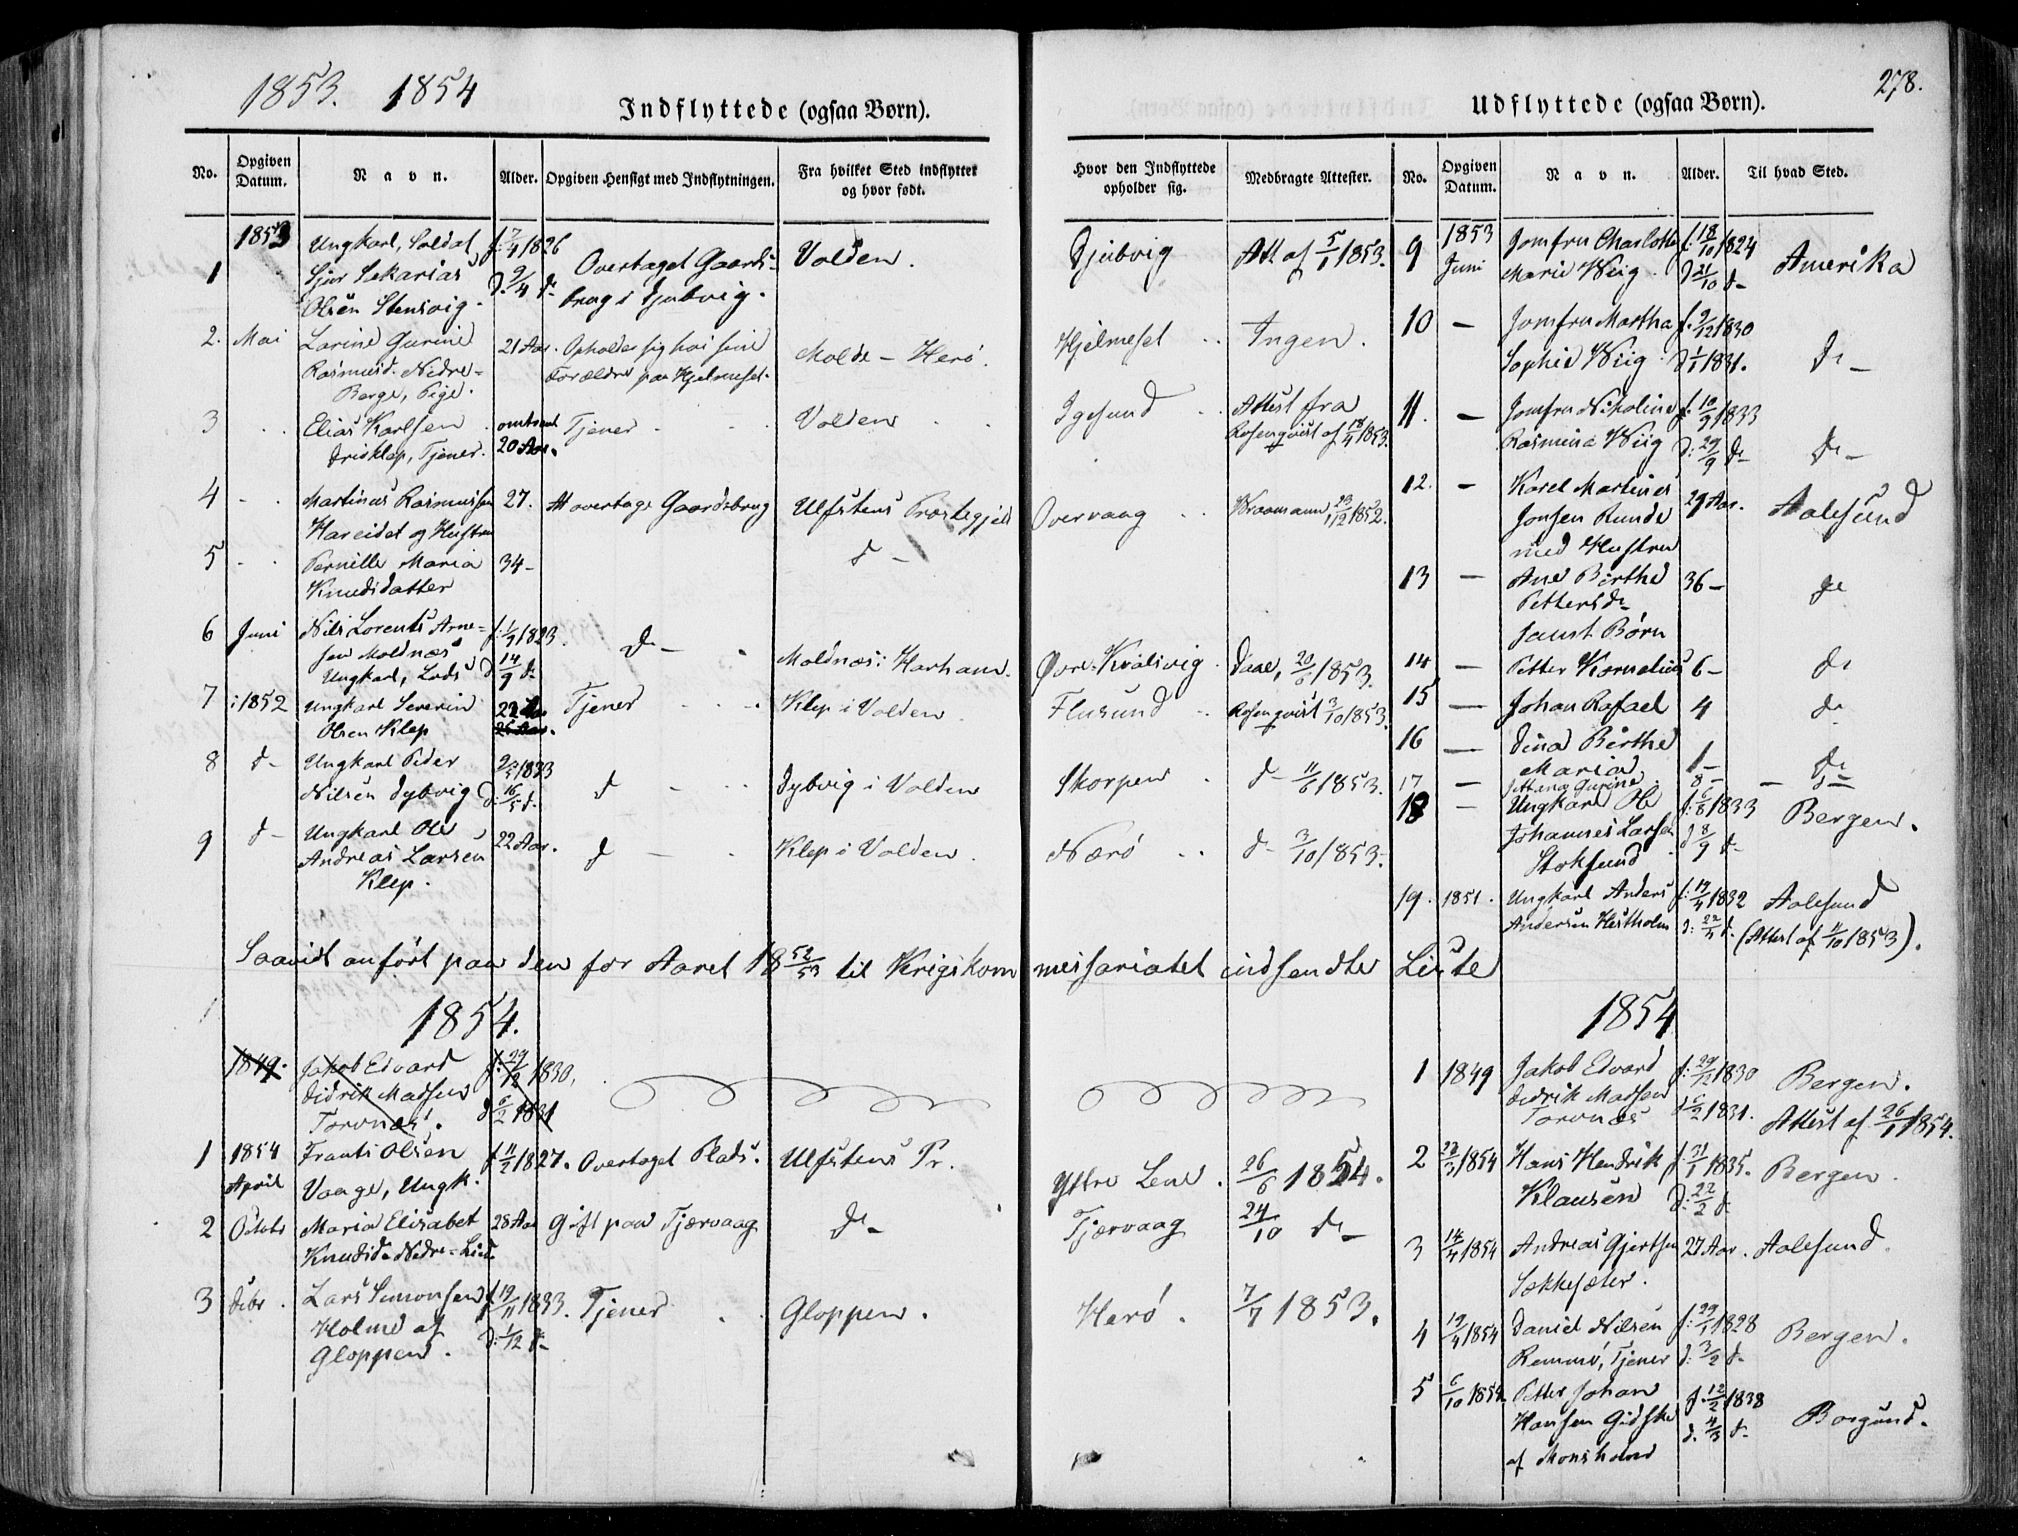 1853. 1854
Indflyttede (ogsaa Børn).
No. Opgiven Datum. Navn. Alder. Opgiven Hensigt med Indflytningen. Fra hvilket Sted indflyttet og hvor født.
1853 Ungkarl, Soldat f: 7/4 1826
1 Sjur Sekarias D. 9/4 d- Overtaget Gaards- Volden.
Olsen Stensvig. brug i Djubvig.
2. Mai Larine Gurine 21 Aar. Opholder sig hos sine Molde - Herö.
Rasmusd. Nedre- Forældre paa Hjelmeset.
Berge, Pige.
3 Elias Karlsen omtrent Tjener Volden
Drisklep, Tjener. 20 Aar.
4 Martinus Rasmussen 27. At overtage Gaardsbrug Ulfstens Præstegjeld
Hareidet og Hustru
5 Pernille Maria 34- d-
Knudsdatter
6 Juni Nils Lorents Arne- f: 1/9 1823. d-
sen Moldnæs Moldnæs i Harham.
Ungkarl, Lods D 14/9 d-
7 i 1852 Ungkarl Severin 22 Aar Tjener Klep i Volden
Olsen Klep
8 d- Ungkarl Peder 2/5 1833
Nilsen Dybvig D: 16/5 d. d Dybvig i Volden
9 d- Ungkarl Ole 22 Aar. d Klep i Volden.
Andreas Larsen
Klep.
Saavidt anført paa den for Aaret 18 52/53 til Krigskommissariatet indsendte Liste
1854.
1849. Jakob Edvard f: 29/12 1830.
Didrik Madsen
Torvnæs. D 6/2 1831
1 1854 Frants Olsen f 11/2 1827. Overtaget Plads. Ulfstens Pr.
April Vaage, Ungk.
2 Octobr Maria Elisabet 28 Aar Gift paa Tjærvaag d-
Knudsd. Nedre-Lid
3 Debr. Lars Simonsen f 19/11 1833. Tjener Gloppen.
Holme af D: 1/12 d-
Gloppen.
278.
Udflyttede (ogsaa Børn).
Hvor den Indflyttede opholder sig. Medbragte Attester. No. Opgiven Datum. Navn. Alder. Til hvad Sted.
Djubvig Att. af 5/1 1853. 9 1853 Juni Jomfru Charlotte f: 18/9 1824 Amerika
Marie Wiig D 21/10 d-
Hjelmeset Ingen. 10 - Jomfru Martha f. 9/12 1830
Sophie Wiig D 1/1 1831. d-
Igesund Attest fra 11. - Jomfru Nikoline f. 10/9 1833
Rosenqvist af 18/4 1853. Rasmine Wiig D: 29/9 d- d-
Overvaag Vraamann 23/12 1852. 12. - Karel Martines 29 Aar. Aalesund
Jonsen Runde
med Hustru
13 - Ane Birthe 36- d-
Pettersd-
samt Børn
Øvre-Kvalsvig Daae, 20/6 1853. 14 - Petter Kornelius 6- d-
Flusund Rosenqvist 3/10 1853. 15 - Johan Rafael 4 d-
16 - Dina Birthe
Maria 1- d-
Skorpen d- 11/6 1853. 17 - Gurine 8- - d-
18 - Ungkarl Ole f: 6/8 1833 Bergen.
Johannes Larsen D 8/9 d-
Nærö d- 3/10 1853. Stoksund
19. 1851. Ungkarl Anders f: 19/4 1832 Aalesund
Andersen Hestholm D: 22/4 d. (Attest af 11/10 1853).
1854
1 1849 Jakob Edvard f: 29/12 1830 Bergen.
Didrik Madsen
Torvnæs D 6/2 1831. Attest af 26/1 1854.
Yttre Lene. 26/6 1854. 2 23/3 1854 Hans Hendrik f: 31/1 1835. Bergen.
Klausen D: 22/2 d-
Tjervaag 24/10 d- 3 14/4 1854 Andreas Gjertsen 27 Aar. Aalesund.
Sækkesæter.
Herö. 7/7 1853. 4 19/4 1854 Daniel Nilsen f: 29/1 1828 Bergen.
Remmø, Tjener D: 3/2 d-
5 6/10 1854 Petter Johan f. 12/2 1838 Borgund.
Hansen Gidske D. 4/3 d-
af Monshand